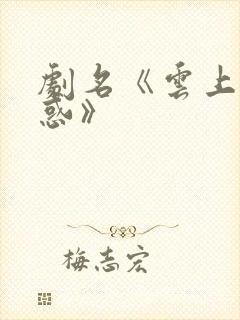 劇名《雲上
惑》
梅志宏